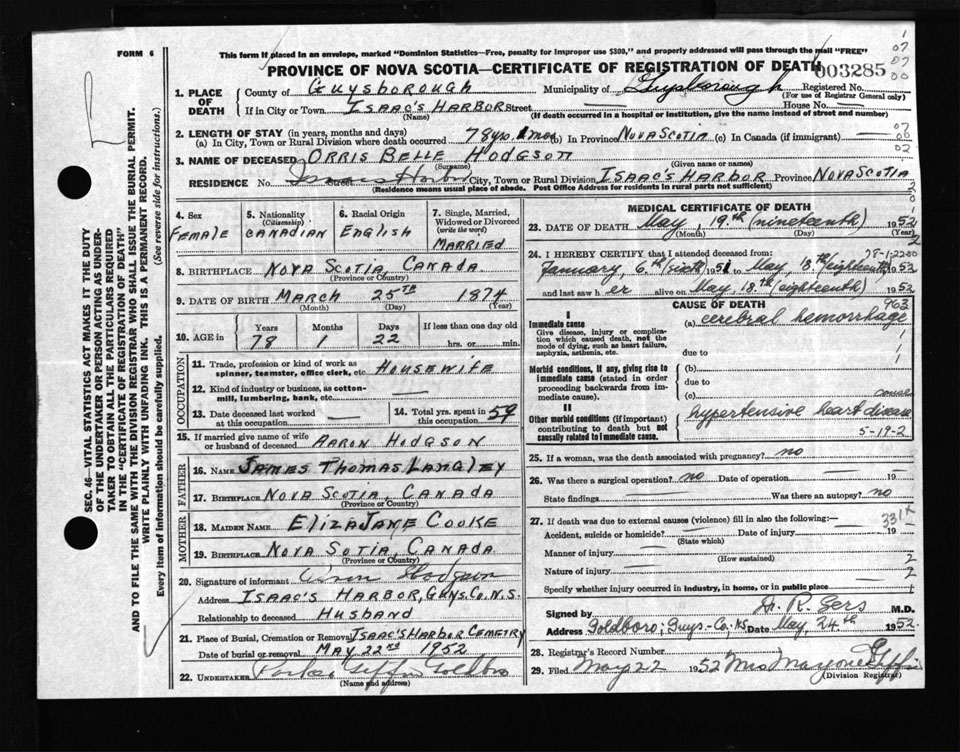 FORM 6
This form if placed in an envelope, marked "Dominion Statistics—Free, penalty for improper use $300," and properly addressed will pass through the mail "FREE"
PROVINCE OF NOVA SCOTIA—CERTIFICATE OF REGISTRATION OF DEATH
003285
1. PLACE OF DEATH
County of GUYSBOROUGH Municipality of Guysborough Registered No.
(For use of Registrar General only)
If in City or Town ISAAC'S HARBOR Street House No.
(Name) (If death occurred in a hospital or institution, give the name instead of street and number)
2. LENGTH OF STAY (in years, months and days)
(a) In City, Town or Rural Division where death occurred 78 yrs. 1 mos (b) In Province NOVA SCOTIA (c) In Canada (if immigrant)
3. NAME OF DECEASED ORRIS BELLE HODGSON
(Surname) (Given name or names)
RESIDENCE No. Street Isaacs Harbor City, Town or Rural Division ISAAC'S HARBOR Province NOVA SCOTIA
(Residence means usual place of abode. Post Office Address for residents in rural parts not sufficient)
4. Sex FEMALE
5. Nationality (Citizenship) CANADIAN
6. Racial Origin ENGLISH
7. Single, Married, Widowed or Divorced (write the word) MARRIED
8. BIRTHPLACE NOVA SCOTIA, CANADA
(Province or Country)
9. DATE OF BIRTH MARCH 25TH 1874
(Month) (Day) (Year)
10. AGE in Years 78 Months 1 Days 22 If less than one day old hrs. or min.
OCCUPATION
11. Trade, profession or kind of work as spinner, teamster, office clerk, etc HOUSEWIFE
12. Kind of industry or business, as cotton-mill, lumbering, bank, etc.
13. Date deceased last worked at this occupation
14. Total yrs. spent in this occupation 59
15. If married give name of wife or husband of deceased AARON HODGSON
FATHER
16. NAME JAMES THOMAS LANGLEY
17. BIRTHPLACE NOVA SCOTIA, CANADA
(Province or Country)
MOTHER
18. MAIDEN NAME ELIZA JANE COOKE
19. BIRTHPLACE NOVA SOTIA, CANADA
(Province or Country)
20. Signature of informant Aaron Hodgson
Address ISAAC'S HARBOR, GUYS. CO. N.S.
Relationship to deceased HUSBAND
21. Place of Burial, Cremation or Removal ISAAC'S HARBOR CEMETRY
Date of burial or removal MAY 22nd 1952
22. UNDERTAKER Parker Giffin Goldboro
(Name and address)
MEDICAL CERTIFICATE OF DEATH
23. DATE OF DEATH May, 19th (nineteenth) 1952
(Month) (Day) (Year)
24. I HEREBY CERTIFY that I attended deceased from:
January, 6th (sixth) 1951 to May, 18th (eighteenth) 1952
and last saw her alive on May, 18th (eighteenth) 1952
CAUSE OF DEATH 963
I
Immediate cause
Give disease, injury or complication which caused death, not the mode of dying, such as heart failure, asphyxia, asthenia, etc.
(a) cerebral hemorrhage
due to
Morbid conditions, if any, giving rise to immediate cause (stated in order proceeding backwards from immediate cause).
(b)
due to
(c)
II
Other morbid conditions (if important) contributing to death but not causally related to immediate cause.
hypertensive heart disease
5-19-2
25. If a woman, was the death associated with pregnancy? no
26. Was there a surgical operation? no Date of operation 19
State findings Was there an autopsy? no
27. If death was due to external causes (violence) fill in also the following:—
331X
Accident, suicide or homicide? Date of injury 19
(State which)
Manner of injury
(How sustained)
Nature of injury
Specify whether injury occurred in industry, in home, or in public place
Signed by M.D.
Address Goldboro; Guys.-Co; NS Date May, 24th 1952
28. Registrar's Record Number
29. Filed May 22 1952 Mrs Marjorie Giffin
(Division Registrar)
SEC. 46—VITAL STATISTICS ACT MAKES IT THE DUTY OF THE UNDERTAKER OR PERSON ACTING AS UNDERTAKER TO OBTAIN ALL THE PARTICULARS REQUIRED IN THE "CERTIFICATE OF REGISTRATION OF DEATH" AND TO FILE THE SAME WITH THE DIVISION REGISTRAR WHO SHALL ISSUE THE BURIAL PERMIT.
WRITE PLAINLY WITH UNFADING INK. THIS IS A PERMANENT RECORD.
Every item of information should be carefully supplied. (See reverse side for instructions.)